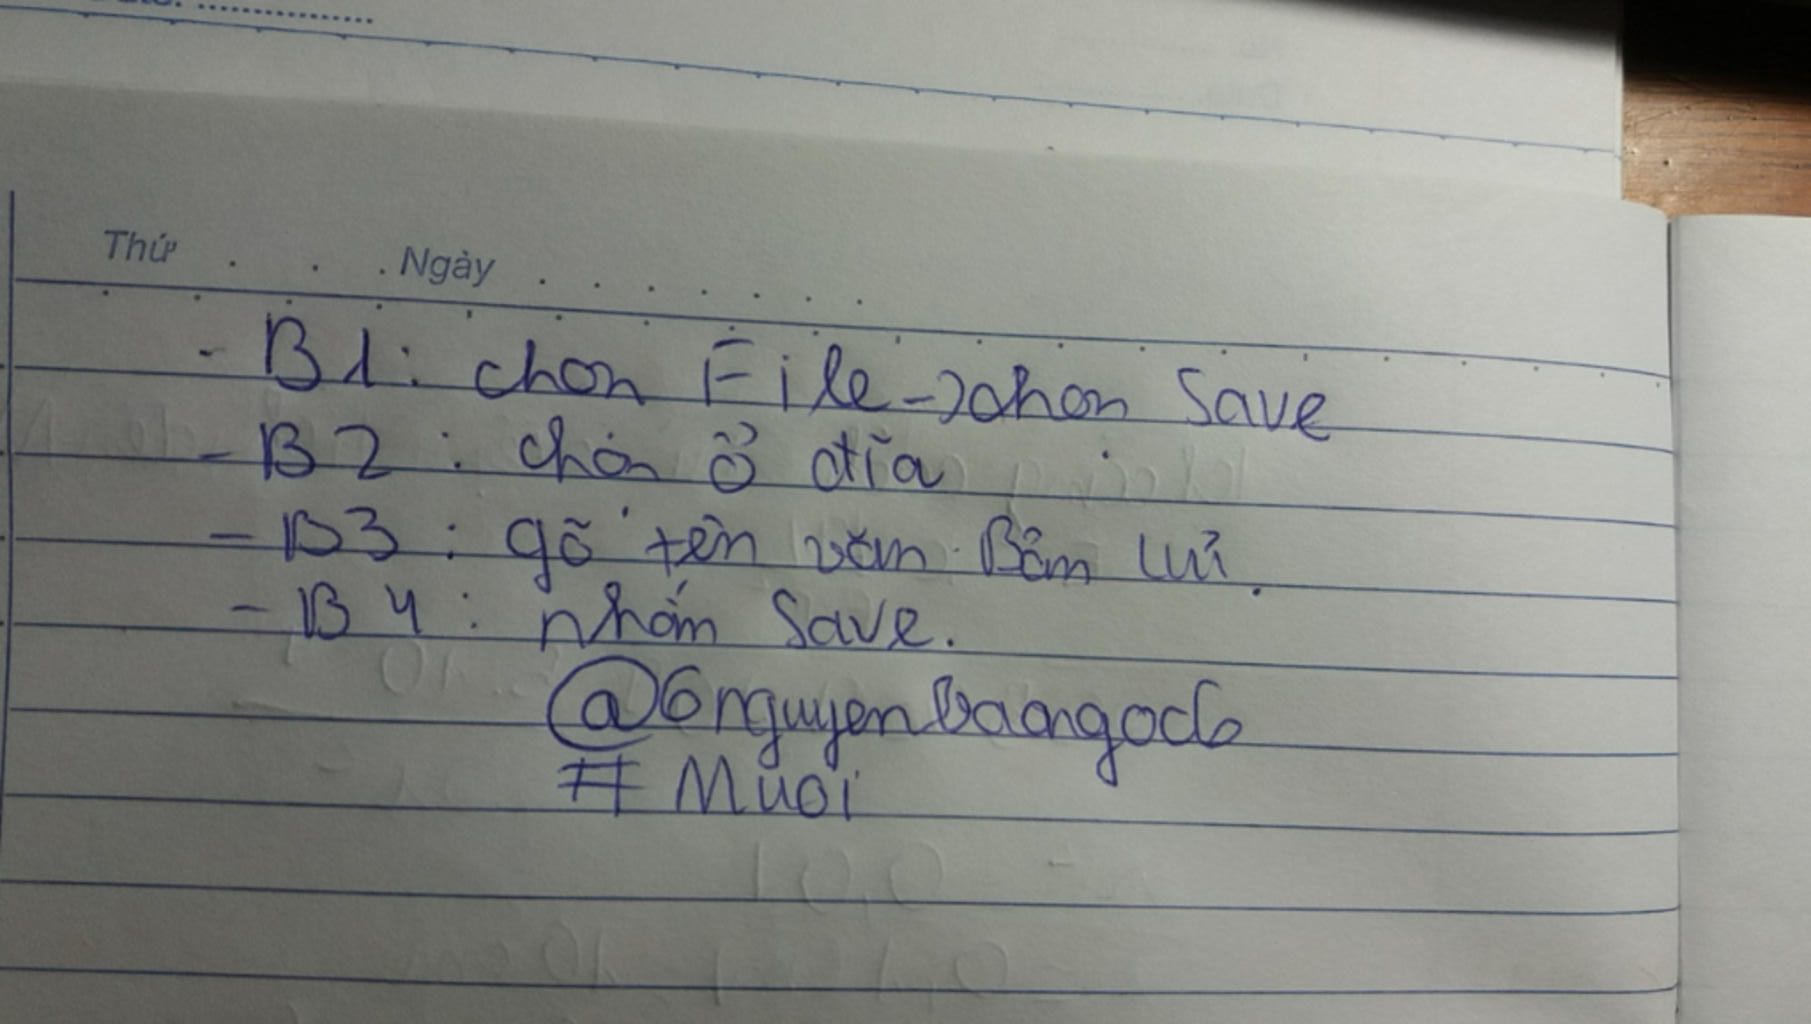 Thứ . . . Ngày . . . . . . .
- B1: chọn File -> chọn Save
- B2: chọn ổ đĩa
- B3: gõ tên văn Bản lưu.
- B4: nhấn Save.
@6nguyenbaongoc6
# Muoi